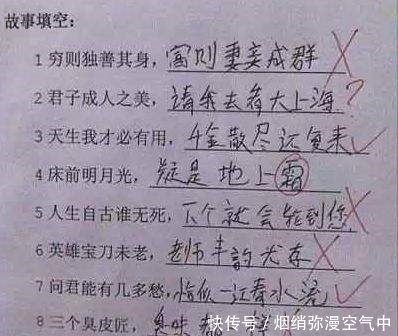 故事填空:
1 穷则独善其身,富则妻妾成群
2 君子成人之美,请我去看大上海?
3 天生我才必有用,千金散尽还复来
4 床前明月光,疑是地上霜
5 人生自古谁无死,下个就会轮到您
6 英雄宝刀未老,老师丰韵尤存
7 问君能有几多愁,恰似一江春水流
8 三个臭皮匠,臭味
快传号/烟绡弥漫空气中